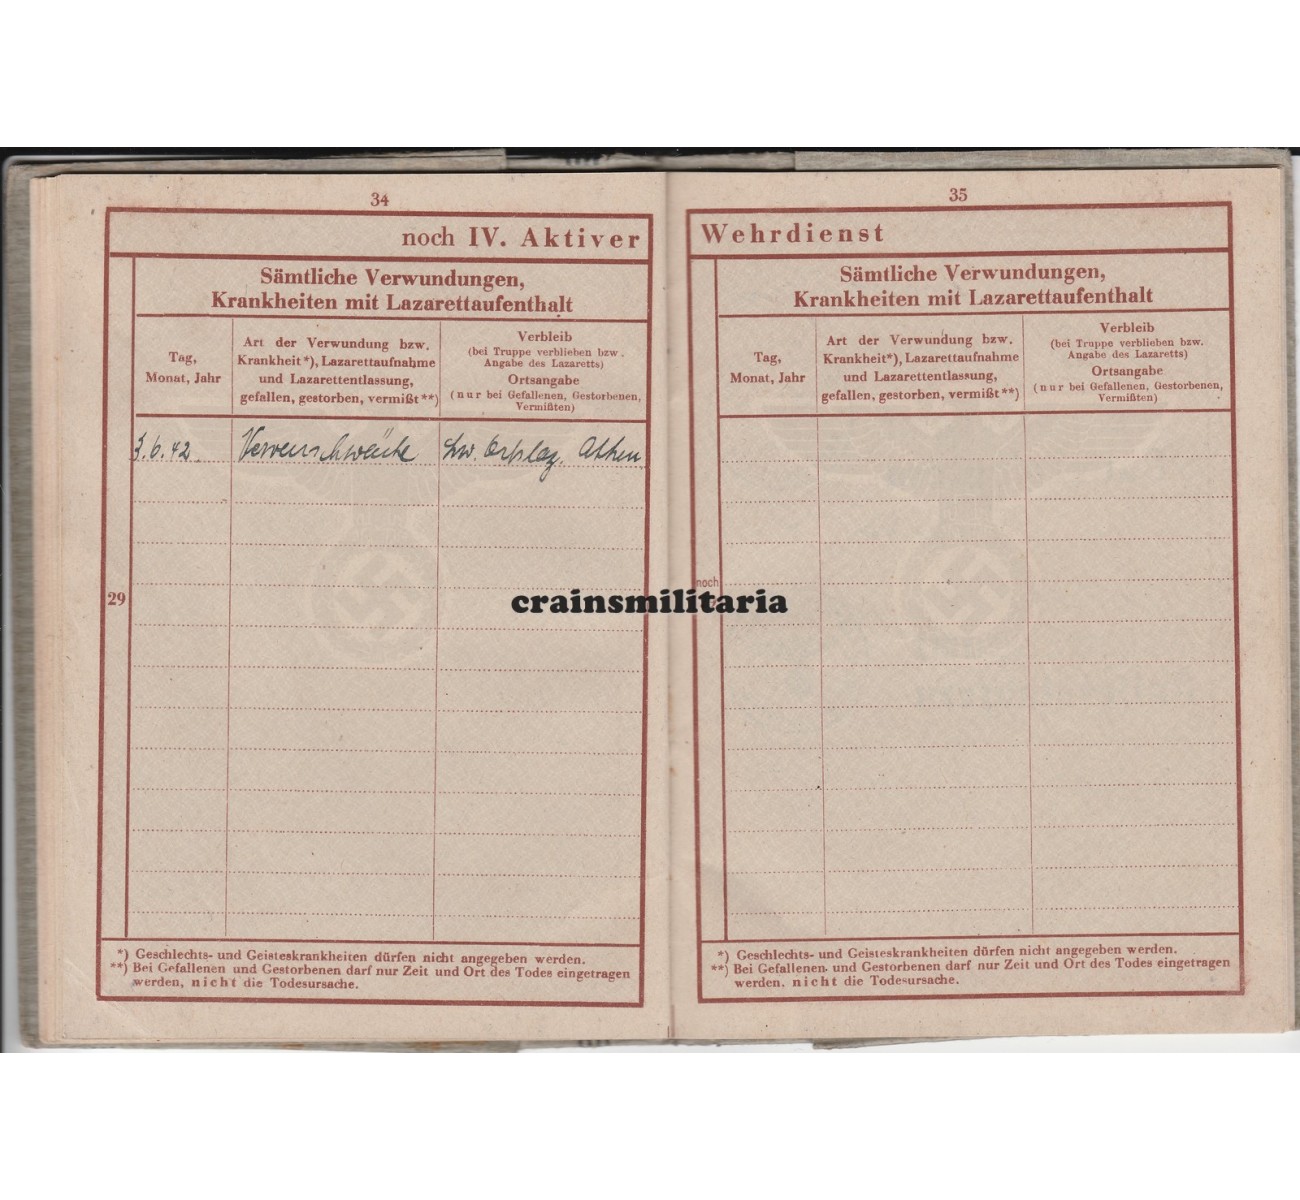 34
noch IV. Aktiver
Sämtliche Verwundungen,
Krankheiten mit Lazarettaufenthalt
Tag,
Monat, Jahr
Art der Verwundung bzw.
Krankheit*), Lazarettaufnahme
und Lazarettentlassung,
gefallen, gestorben, vermißt**)
Verbleib
(bei Truppe verblieben bzw.
Angabe des Lazaretts)
Ortsangabe
(nur bei Gefallenen, Gestorbenen,
Vermißten)
3.6.42. Nervenschwäche Lw. Athen
29
*) Geschlechts- und Geisteskrankheiten dürfen nicht angegeben werden.
**) Bei Gefallenen und Gestorbenen darf nur Zeit und Ort des Todes eingetragen
werden, nicht die Todesursache.
35
Wehrdienst
Sämtliche Verwundungen,
Krankheiten mit Lazarettaufenthalt
Tag,
Monat, Jahr
Art der Verwundung bzw.
Krankheit*), Lazarettaufnahme
und Lazarettentlassung,
gefallen, gestorben, vermißt**)
Verbleib
(bei Truppe verblieben bzw.
Angabe des Lazaretts)
Ortsangabe
(nur bei Gefallenen, Gestorbenen,
Vermißten)
noch
*) Geschlechts- und Geisteskrankheiten dürfen nicht angegeben werden.
**) Bei Gefallenen und Gestorbenen darf nur Zeit und Ort des Todes eingetragen
werden, nicht die Todesursache.
crainsmilitaria